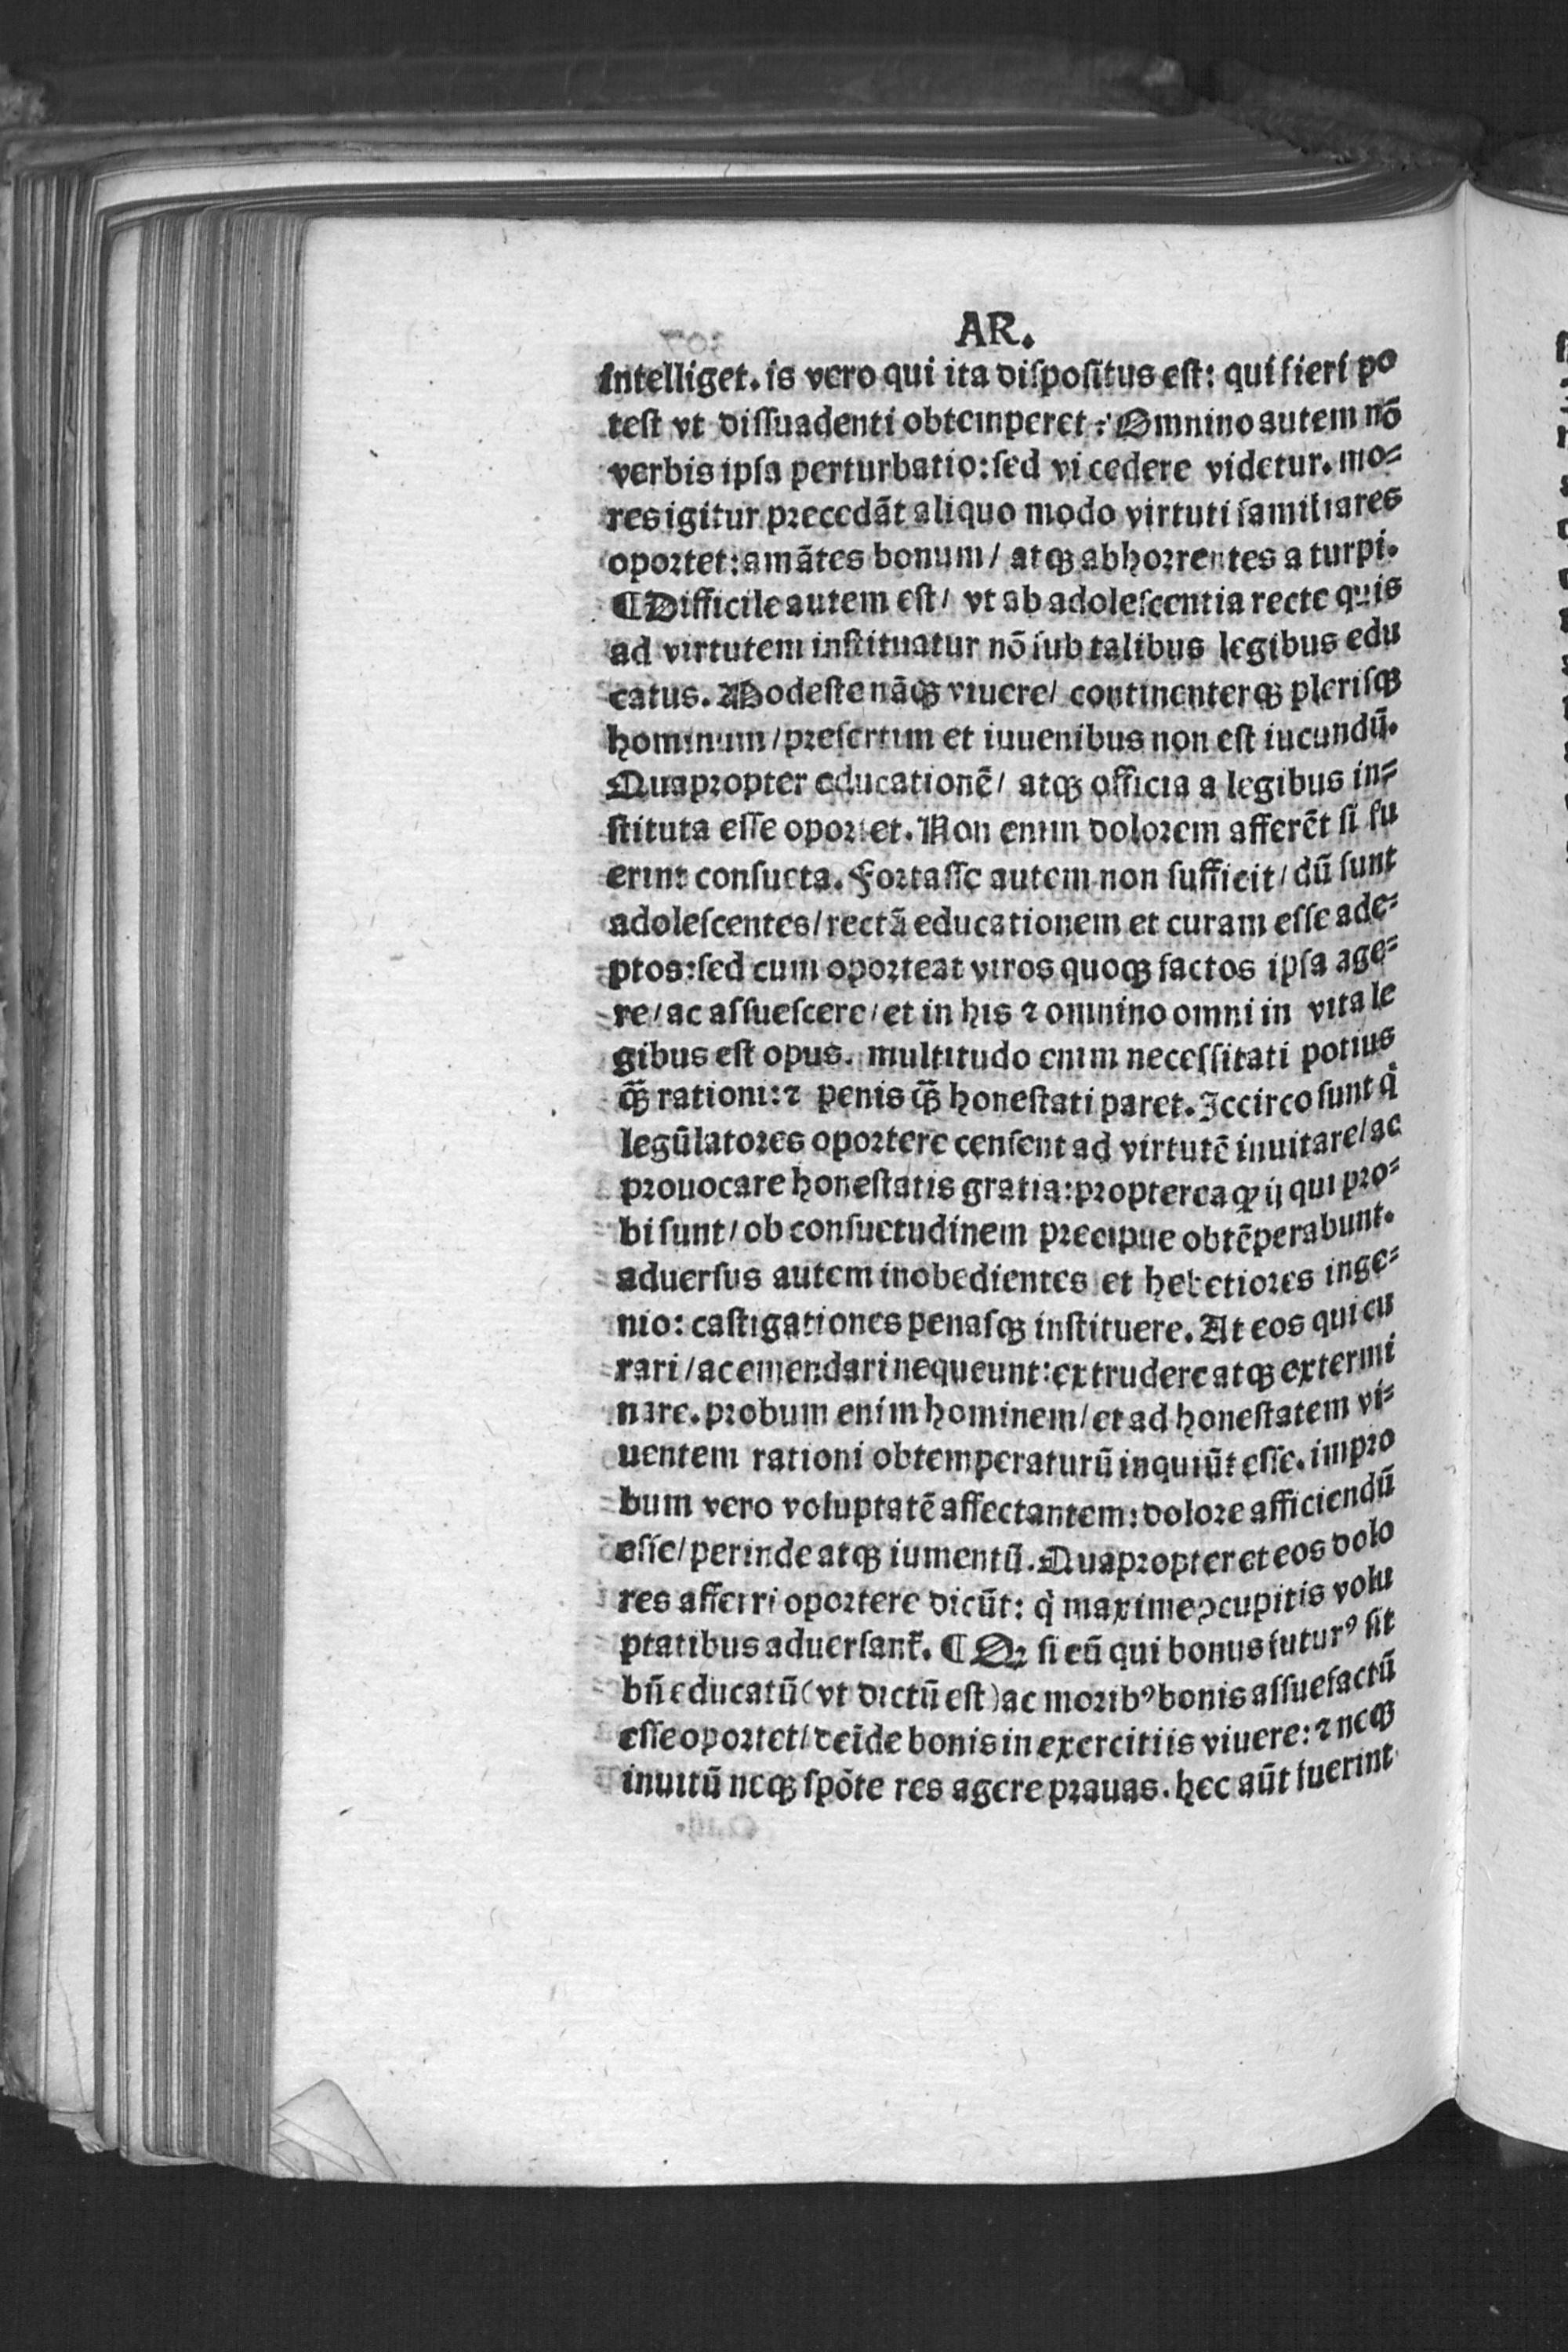 AR.
intelliget. is vero qui ita dispositus est: qui fieri po
test vt dissuadenti obtemperet? Omnino autem nō
verbis ipsa perturbatio: sed vi cedere videtur. mo=
res igitur precedāt aliquo modo virtuti familiares
oportet: amātes bonum/ atqꝫ abhorrentes a turpi.
¶ Difficile autem est/ vt ab adolescentia recte quis
ad virtutem instituatur nō sub talibus legibus edu
catus. Modeste nāqꝫ viuere/ continenterqꝫ plerisqꝫ
hominum/ presertim et iuuenibus non est iucundū.
Quapropter educationē/ atqꝫ officia a legibus in=
stituta esse oportet. Non enim dolorem afferēt si fu
erint consueta. Fortasse autem non sufficit/ dū sunt
adolescentes/ rectā educationem et curam esse ade=
ptos: sed cum oporteat viros quoqꝫ factos ipsa age=
re/ ac assuescere/ et in his ⁊ omnino omni in vita le
gibus est opus. multitudo enim necessitati potius
qꝫ̄ rationi: ⁊ penis qꝫ̄ honestati paret. Iccirco sunt q̇
legūlatores oportere censent ad virtutē inuitare/ ac
prouocare honestatis gratia: propterea ꝙ ij qui pro=
bi sunt/ ob consuetudinem precipue obtēperabunt.
aduersus autem inobedientes et hebetiores inge=
nio: castigationes penasqꝫ instituere. At eos qui cu
rari/ ac emendari nequeunt: extrudere atqꝫ extermi
nare. probum enim hominem/ et ad honestatem vi=
uentem rationi obtemperaturū inquiūt esse. impro
bum vero voluptatē affectantem: dolore afficiendū
esse/ perinde atqꝫ iumentū. Quapropter et eos dolo
res afferri oportere dicūt: q̇ maxime ↄcupitis volu
ptatibus aduersant᷑. ¶ Qꝛ si eū qui bonus futurꝰ sit
bn̄ educatū (vt dictū est) ac moribꝰ bonis assuefactū
esse oportet/ deīde bonis in exercitiis viuere: ⁊ neqꝫ
inuitū neqꝫ spōte res agere prauas. hec aūt fuerint